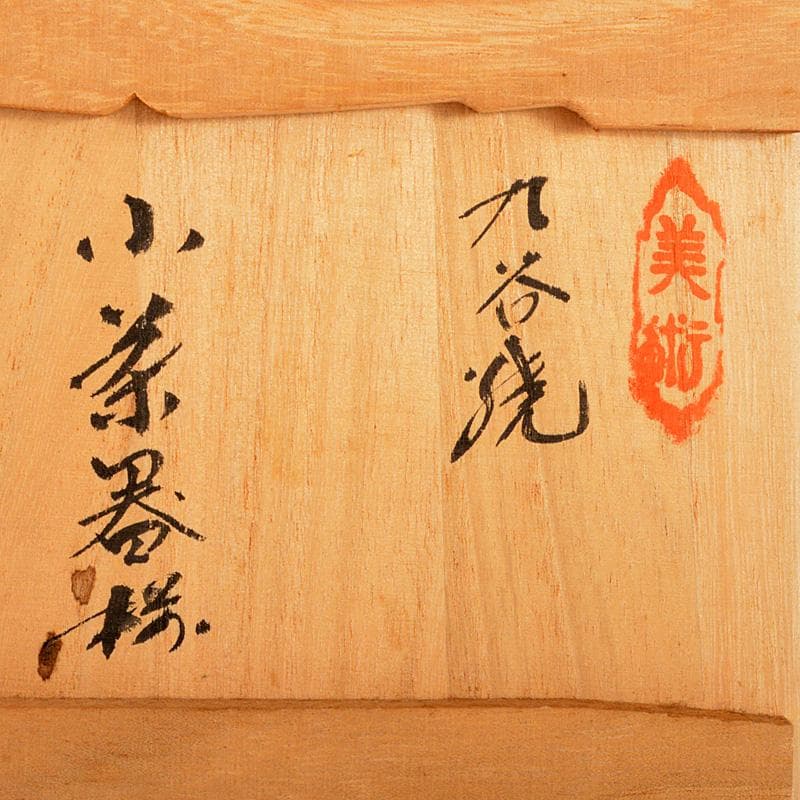 美術
九谷焼
小茶器揃